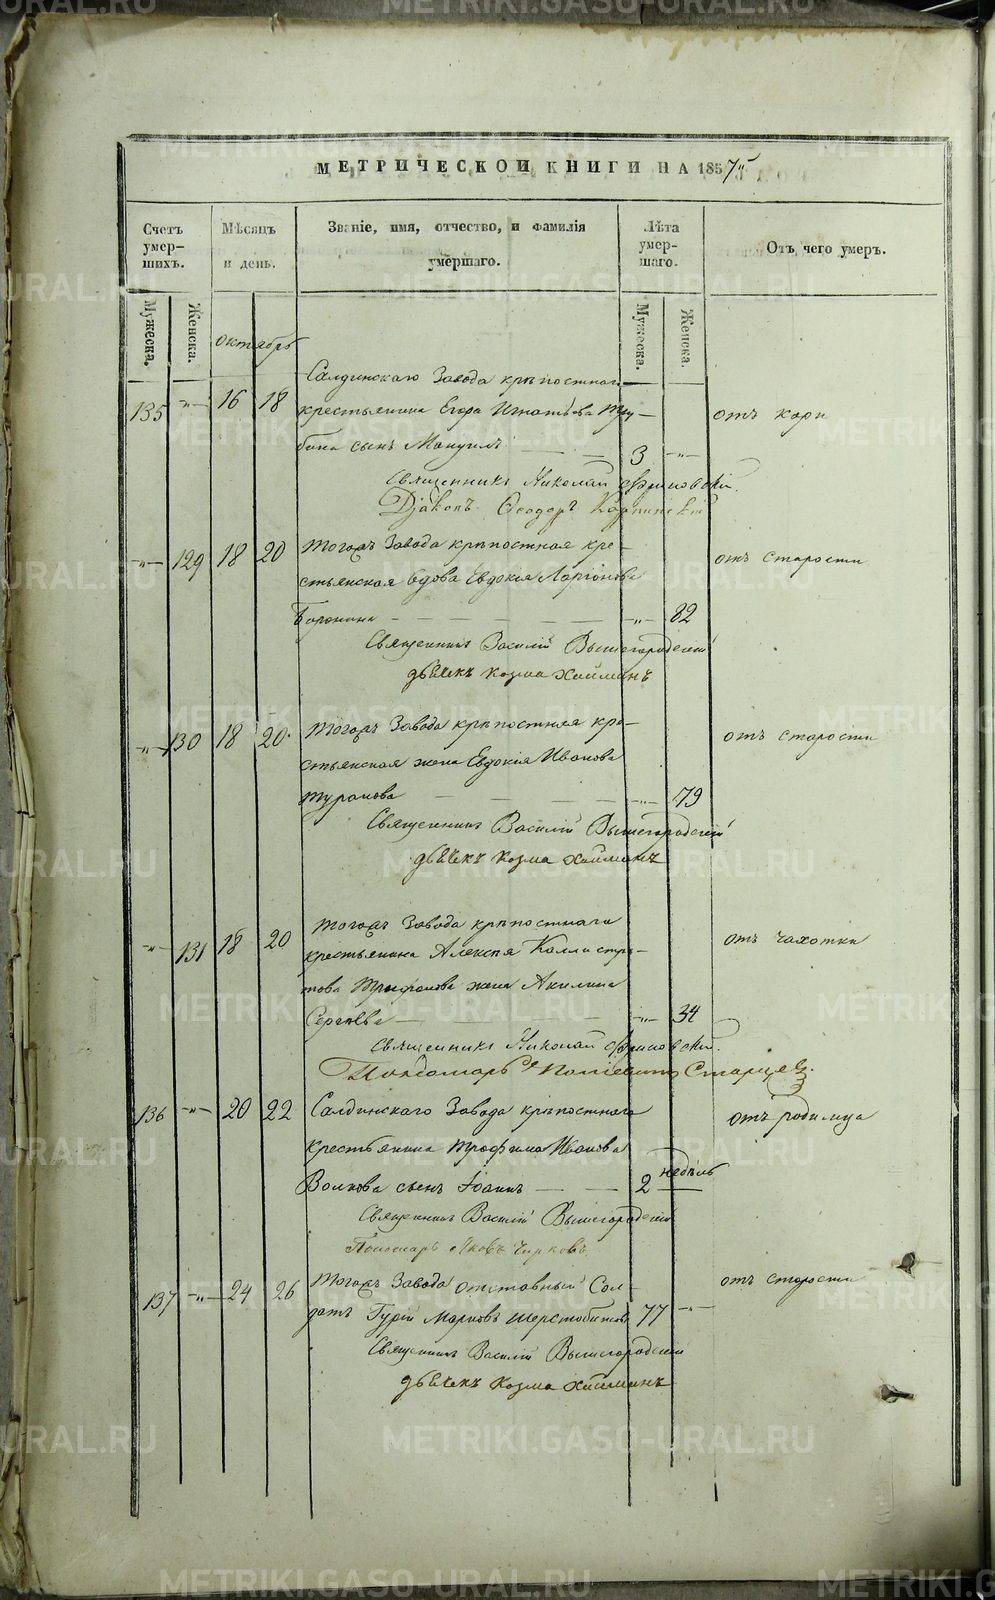 METRIKI.GASO-URAL.RU
МЕТРИЧЕСКОЙ КНИГИ НА 1857
Счетъ умер-шихъ.
Мѣсяцъ и день.
Званіе, имя, отчество, и фамилія умершаго.
Лѣта умер-шаго.
Отъ чего умеръ.
Мужеска. Женска. Мужеска. Женска.
октябрь
Салдинскаго Завода крѣпостнаго
135 -"- 16 18 крестьянина Егора Игнатьева Тру- отъ кори
бина сынъ Мануилъ 3 -"-
Священникъ Николай Флоровскій.
Дьяконъ Ѳеодоръ Карпинскій
-"- 129 18 20 Тогожъ Завода крѣпостная кре- отъ старости
стьянская вдова Евдокія Ларіонова
Воронина -"- 82
Священникъ Василій Вышегородскій
дьячекъ Козма Хайминъ
-"- 130 18 20 Тогожъ Завода крѣпостная кре- отъ старости
стьянская жена Евдокія Иванова
Туранова -"- 79
Священникъ Василій Вышегородскій
дьячекъ Козма Хайминъ
-"- 131 18 20 Тогожъ Завода крѣпостнаго отъ чахотки
крестьянина Алексѣя Каллистра-
това Трифонова жена Акилина
Сергѣева -"- 34
Священникъ Николай Флоровскій.
Пономарь Старцев.
136 -"- 20 22 Салдинскаго Завода крѣпостнаго отъ родимца
крестьянина Трофима Иванова
Волкова сынъ Іоаннъ 2 недѣль
Священникъ Василій Вышегородскій
Пономарь Яковъ Чирковъ
137 -"- 24 26 Тогожъ Завода отставный Сол- отъ старости
датъ Гурій Марковъ Шерстобитовъ 77 -"-
Священникъ Василій Вышегородскій
дьячекъ Козма Хайминъ